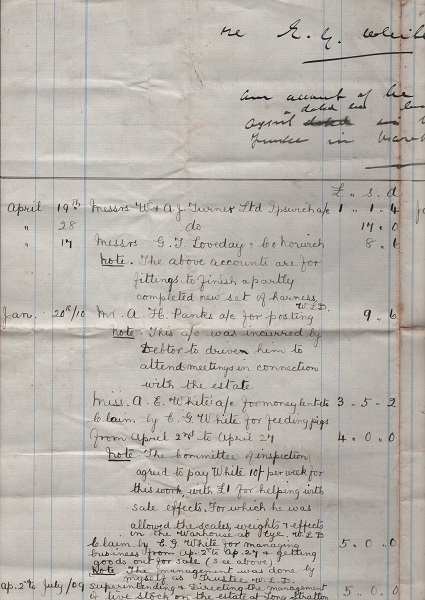 re E. G. White
an account of the
dated
April
Trustee in
£ . s . d
April 19th Messrs W & A J Turner Ltd Ipswich a/c 1 . 1 . 4
" 28 do 17 . 0
" 17 Messrs G. T Loveday & Co Norwich 8 . 6
Note. The above accounts are for
fittings to finish a partly
completed new set of harness
W.L.D.
Jan. 20th/10 Mr. A. H. Panks a/c for posting 9 . 6
Note. This a/c was incurred by
Debtor to driven him to
attend meetings in connection
with the estate
Miss. A. E. White a/c for money lent &c 3 . 5 . 2
Claim by E. G. White for feeding pigs
from April 2nd to April 27 4 . 0 . 0
Note The Committee of inspection
agreed to pay White 10/- per week for
this work, with £1 for helping with
sale effects. For which he was
allowed the scales, weights & effects
in the warehouse at Eye. W.L.D
Claim by E G White for managing 5 . 0 . 0
business from ap. 2nd to ap. 27 & getting
goods out for sale (see above)
Note The management was done by
myself as Trustee W.L.D.
ap. 2nd to July /09 Superintending & Directing the management
of live stock on the estate at Long Stratton 5 . 0 . 0